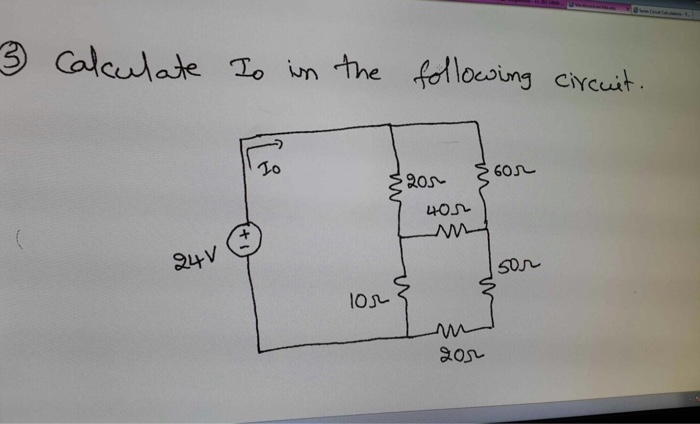 ③ Calculate Io in the following circuit.
Io
20Ω
60Ω
40Ω
+
-
24V
10Ω
50Ω
20Ω